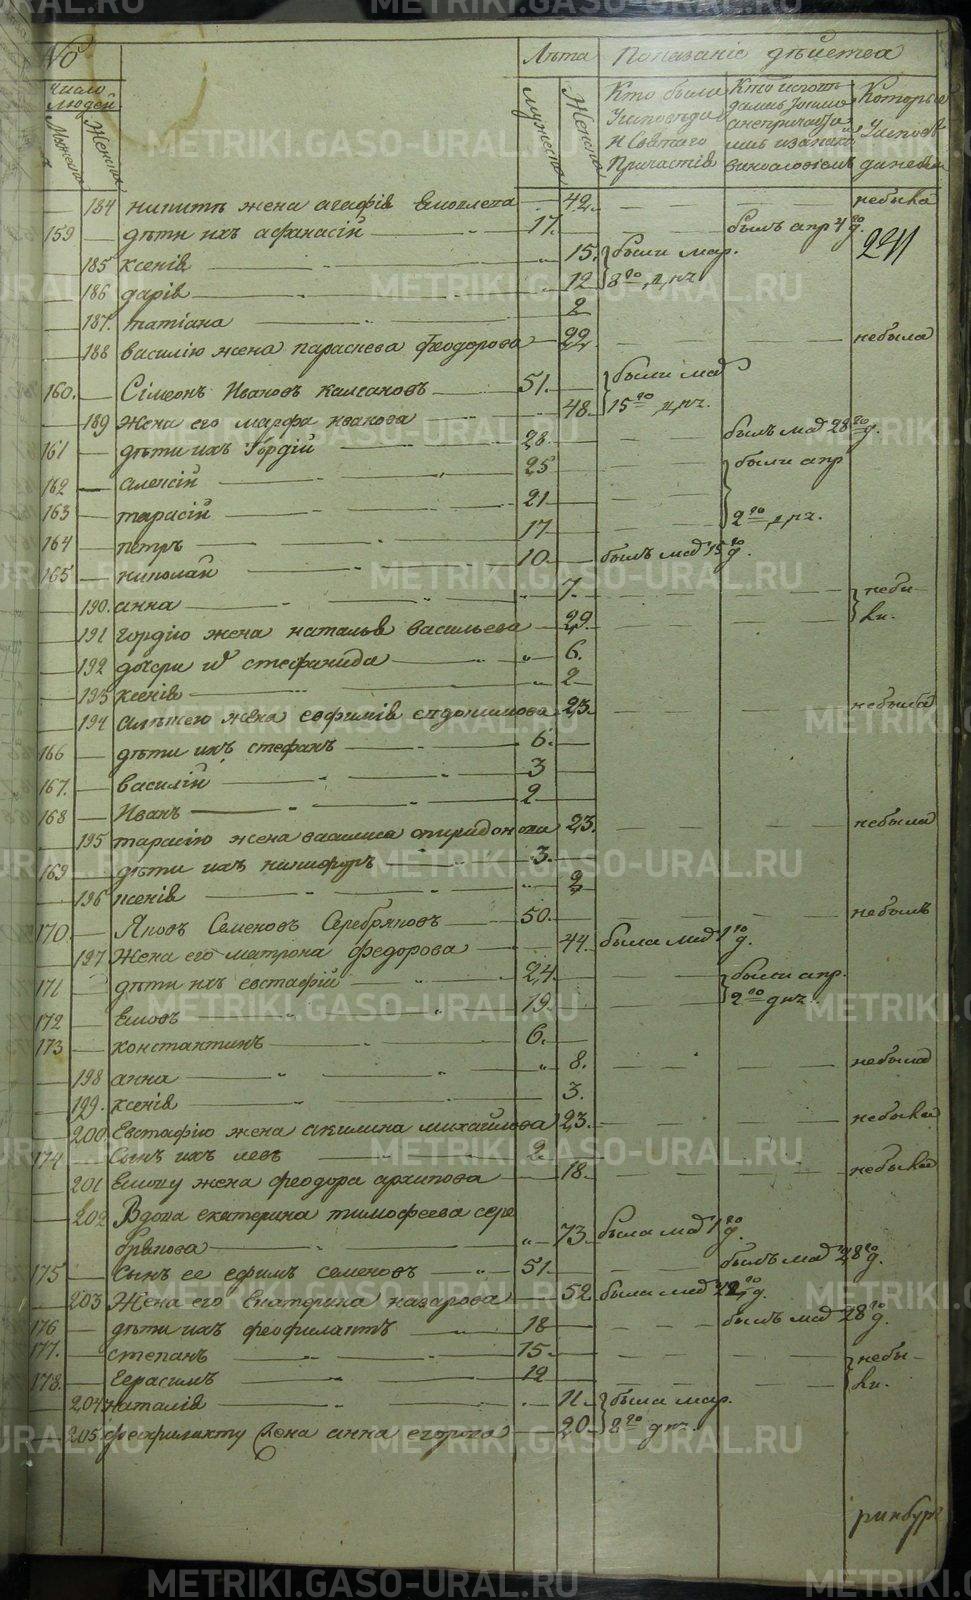 № Лѣта Показаніе дѣйства
число людей
Мужеска Женска Мужеска Женска
Кто были У исповѣди и Святаго Причастія
Которые У исповѣди небыли
184 никитѣ жена агафія 42 небыла
159 дѣти ихъ афанасій 17. былъ апр 4го д.
241
185 ксенія 15. были мар.
186 дарія 12 8го д, нч
187. татіана 2
188 василію жена параскева феодорова 22. небыла
160. Сімеонъ Ивановъ 51. были мая
189 жена его марфа иванова 48. 15го д, нч.
161 дѣти ихъ Гордій 28. былъ мая 28го д.
162 алексій 25 были апр
163 тарасій 21 2го д, нч.
164 петръ 17
165 николай 10. былъ мая 15го д.
190. анна 7. небы-
191 гордію жена наталья васильева 29 ли.
192 дочери их стефанида „ 6.
193 ксенія „ 2
194 алексею жена евфимія евдокимова 23. небыла
166 дѣти ихъ стефанъ 6.
167. василій 3
168 Иванъ 2
195 тарасію жена василиса спиридонова 23. небыла
169 дѣти ихъ никифоръ 3.
196 ксенія „ 2
170. Яковъ Семеновъ Серебряковъ 50. небылъ
197 Жена его матрона федорова 44. была мая 1го д.
171 дѣти ихъ евстафій 24. были апр.
172 19. 2го днч.
173 константинъ 6.
198 анна „ 8. небыла
199. ксенія 3.
200. Евстафію жена акилина михайлова 23. небыла
174 Сынъ ихъ левъ 2
201 жена феодора архипова 18. небыла
202 Вдова екатерина тимофеева сере
брякова „ 73. была мая 1го д.
175 Сынъ ее ефимъ семеновъ 51. былъ мая 28го д.
203 Жена его Екатерина назарова 52 была мая д.
176 дѣти ихъ феофилактъ 18 былъ мая 28го д.
177. степанъ 15. небы-
178. Герасимъ 12 ли.
204 наталія 11. была мар.
205. феофилакту жена анна егорова 20. 8го д нч.
ринбург
METRIKI.GASO-URAL.RU